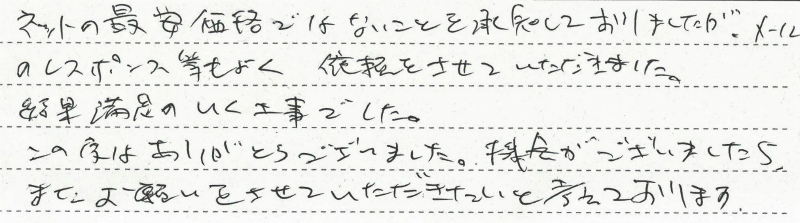 ネットの最安価格ではないことを承知しておりましたが、メール
のレスポンス等もよく 依頼をさせていただきました。
結果満足のいく工事でした。
この度はありがとうございました。機会がございましたら、
またお願いをさせていただきたいと考えております。